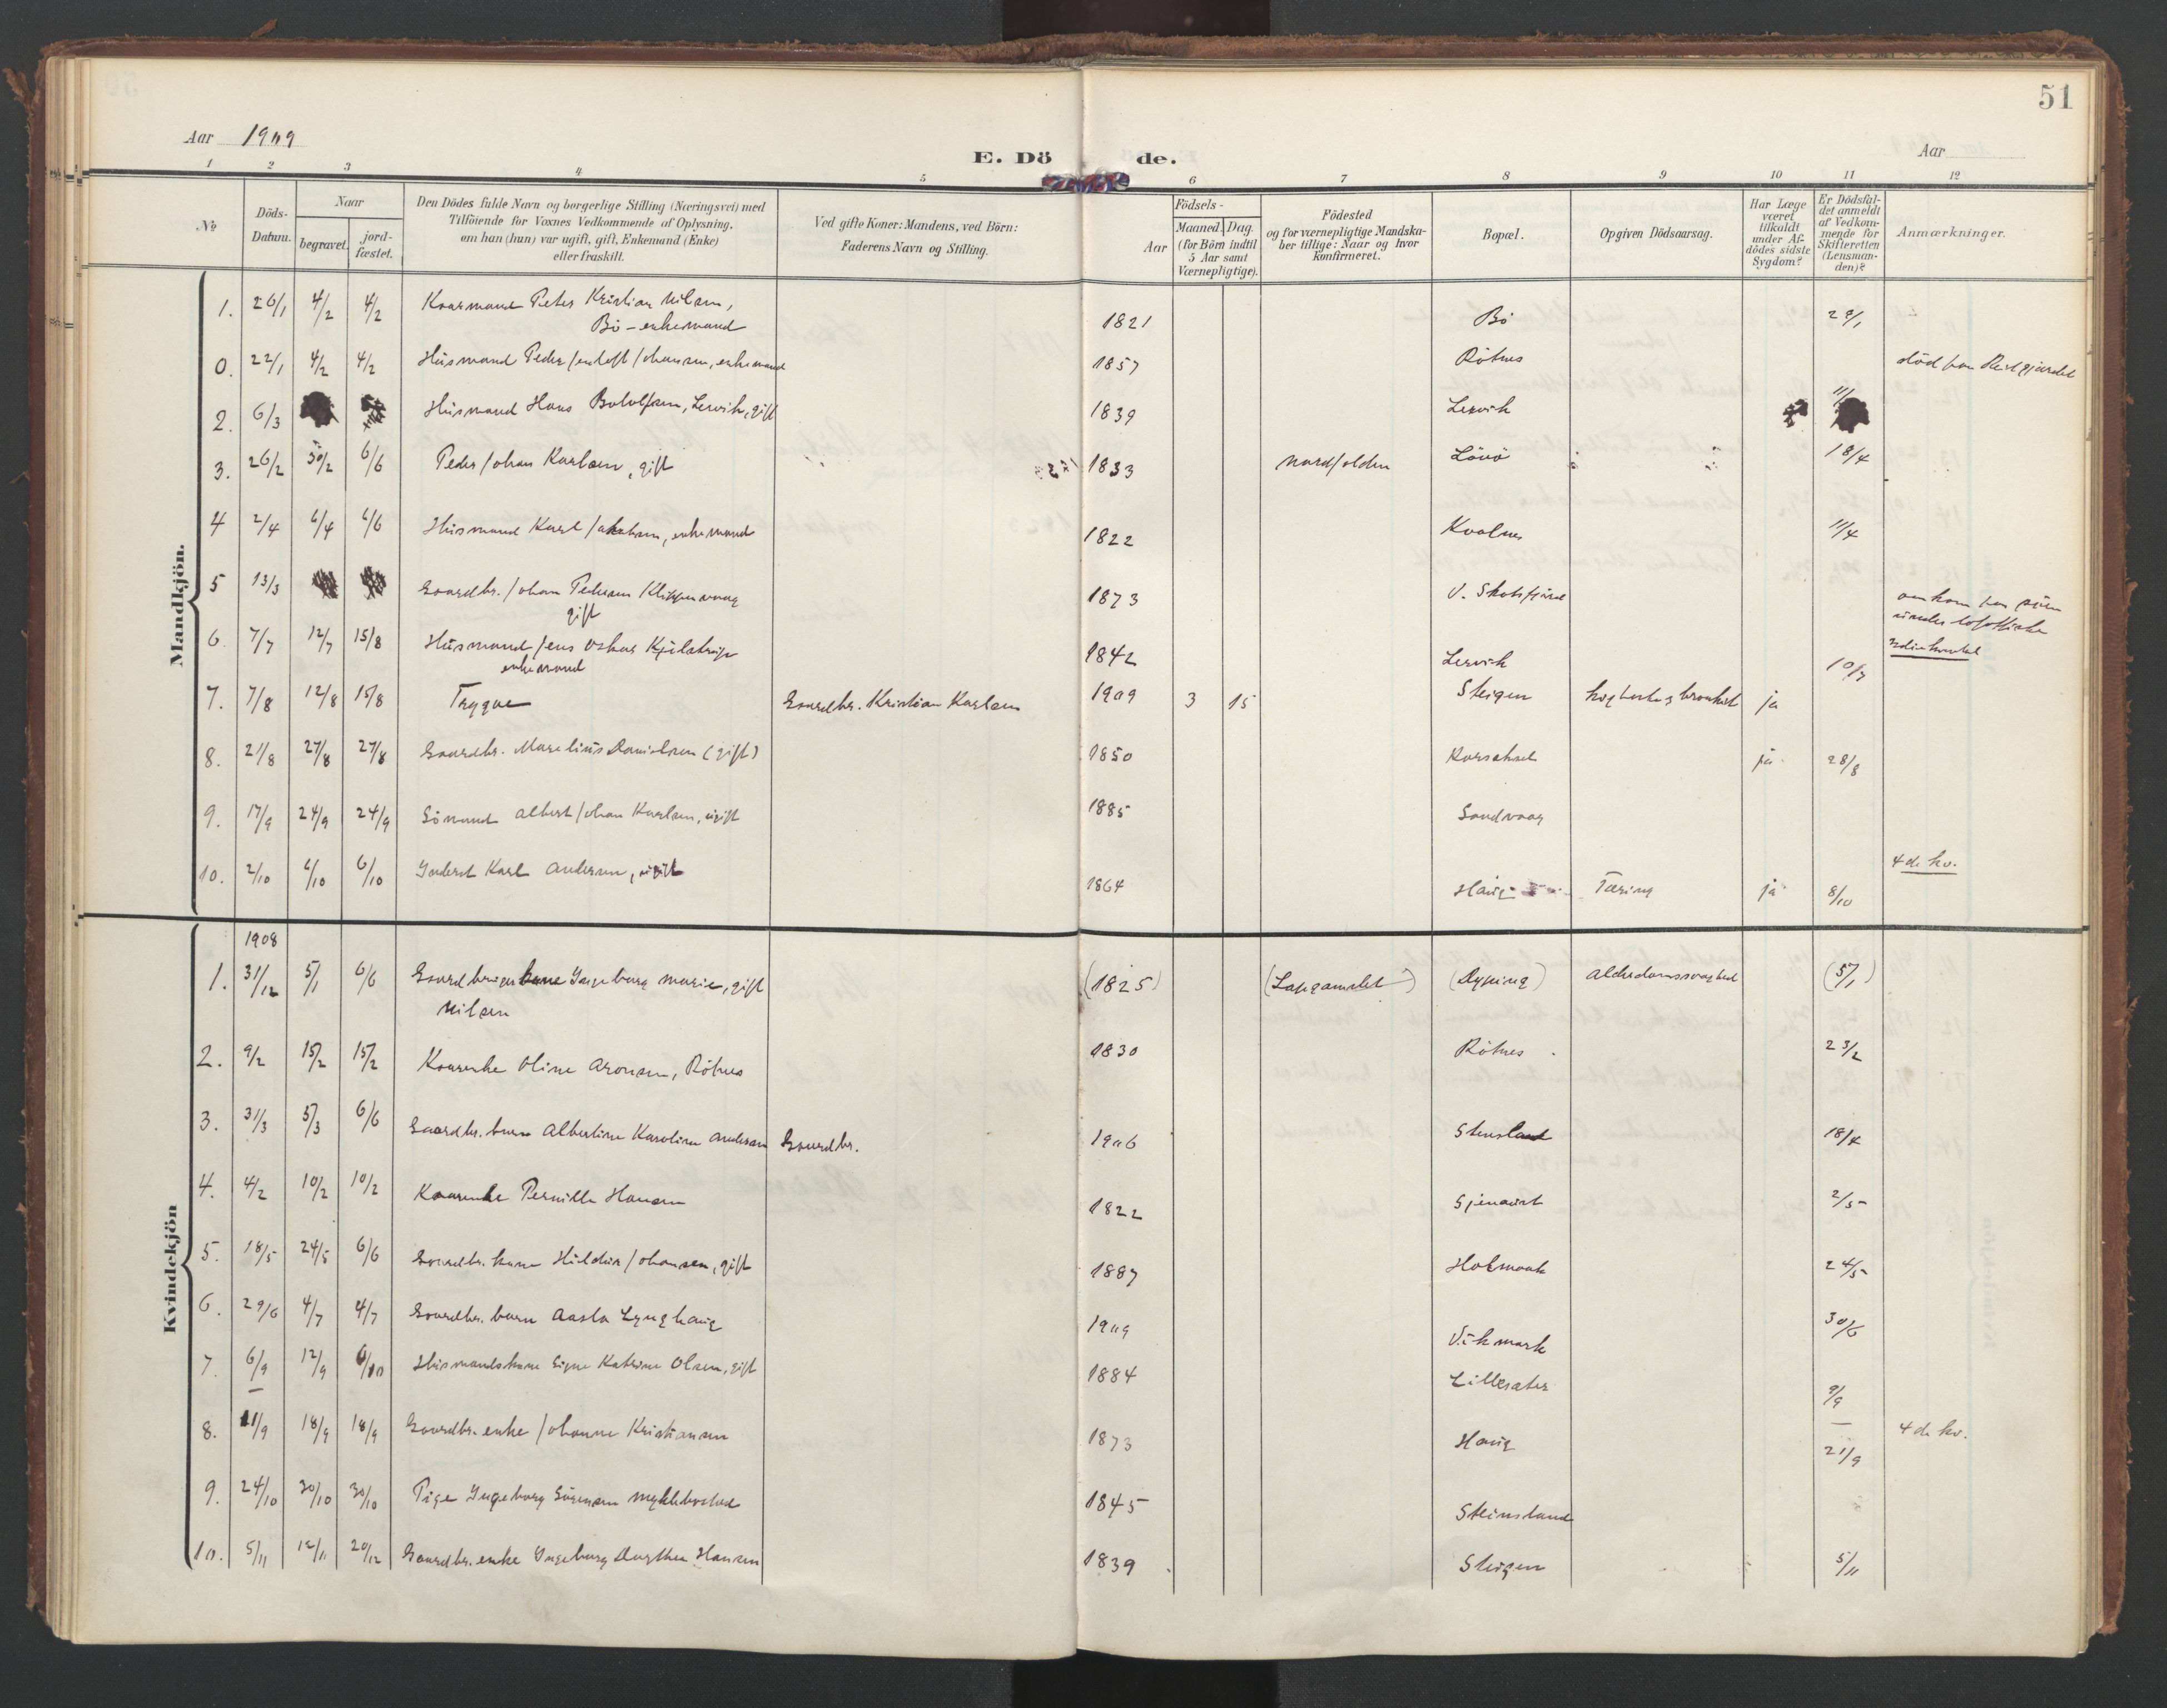 51
Aar 1909
E. Döde.
Aar
1 2 3 4 5 6 7 8 9 10 11 12
No
Döds-Datum.
Naar
begravet.
jord-fæstet.
Den Dödes fulde Navn og borgerlige Stilling (Næringsvei) med
Tilföiende for Voxnes Vedkommende af Oplysning,
om han (hun) var ugift, gift, Enkemand (Enke)
eller fraskilt.
Ved gifte Koner: Mandens, ved Börn:
Faderens Navn og Stilling.
Födsels-
Aar
Maaned. Dag.
(for Börn indtil
5 Aar samt
Værnepligtige).
Födested
og for værnepligtige Mandska-
ber tillige: Naar og hvor
konfirmeret.
Bopæl.
Opgiven Dödsaarsag.
Har Læge
været
tilkaldt
under Af-
dödes sidste
Sygdom?
Er Dödsfal-
det anmeldt
af Vedkom-
mende for
Skifteretten
(Lensman-
den)?
Anmærkninger.
Mandkjön.
1. 26/1 4/2 4/2 Kaarmand Peter Kristian Nilsen,
Bö - enkemand 1821 Bö 29/1
0. 22/1 4/2 4/2 Husmand Peder Jentoft Johansen, enkemand 1857 Rötnes död paa
2. 6/3 Husmand Hans Lervik, gift 1839 Lervik 11/
3. 26/2 30/2 6/6 Peder Johan Karlsen, gift 1833 Nordfolden Lövö 18/4
4 2/4 6/4 6/6 Husmand Karl Jakobsen, enkemand 1822 Kvalnes 11/4
5 13/3 Gaardbr. Johan Pedersen Klippenvaag
gift 1873 V. Skotsfjord omkom paa sjöen
under lofotfiske
6. 7/7 12/7 15/8 Husmand Jens Oskar
enkemand 1842 Lervik 10/7 3die kvartal
7. 7/8 12/8 15/8 Trygve Gaardbr. Kristian Karlsen 1909 3 15 Steigen bronkit ja
8. 21/8 27/8 27/8 Gaardbr. Marelius Danielsen (gift) 1850 ja 28/8
9. 17/9 24/9 24/9 Sömand Albert Johan Karlsen, ugift 1885 Sandvaag
10. 2/10 6/10 6/10 Inderst Karl Andersen, ugift 1864 Haug Tæring ja 8/10 4de kv.
Kvindekjön
1908
1. 31/12 5/1 6/6 Gaardbrugerkone Ingeborg Marie, gift
Nilsen (1825) (Dyping) Alderdomssvaghed (5/1)
2. 9/2 15/2 15/2 Kaarenke Oline Aronsen, Rötnes 1830 Rötnes 23/2
3. 31/3 5/3 6/6 Gaardbr. barn Albertine Karoline Andersen Gaardbr. 1906 Stensland 18/4
4. 4/2 10/2 10/2 Kaarenke Pernille Hansen 1822 2/5
5. 18/5 24/5 6/6 Gaardbr. kone Hildur Johansen, gift 1887 Holmaak 24/5
6. 29/6 4/7 4/7 Gaardbr. barn Aasta Lynghaug 1909 Vikmark 30/6
7. 6/9 12/9 6/10 Husmandskone Signe Katrine Olsen, gift 1884 Lillesæter 9/9
8. 11/9 18/9 18/9 Gaardbr. enke Johanne Kristiansen 1873 Haug 21/9 4de kv.
9. 24/10 30/10 30/10 Pige Ingeborg Sörensen Myklebostad 1845 Steinsland
10. 5/11 12/11 20/12 Gaardbr. enke Ingeborg Dorthea Hansen 1839 Steigen 5/11